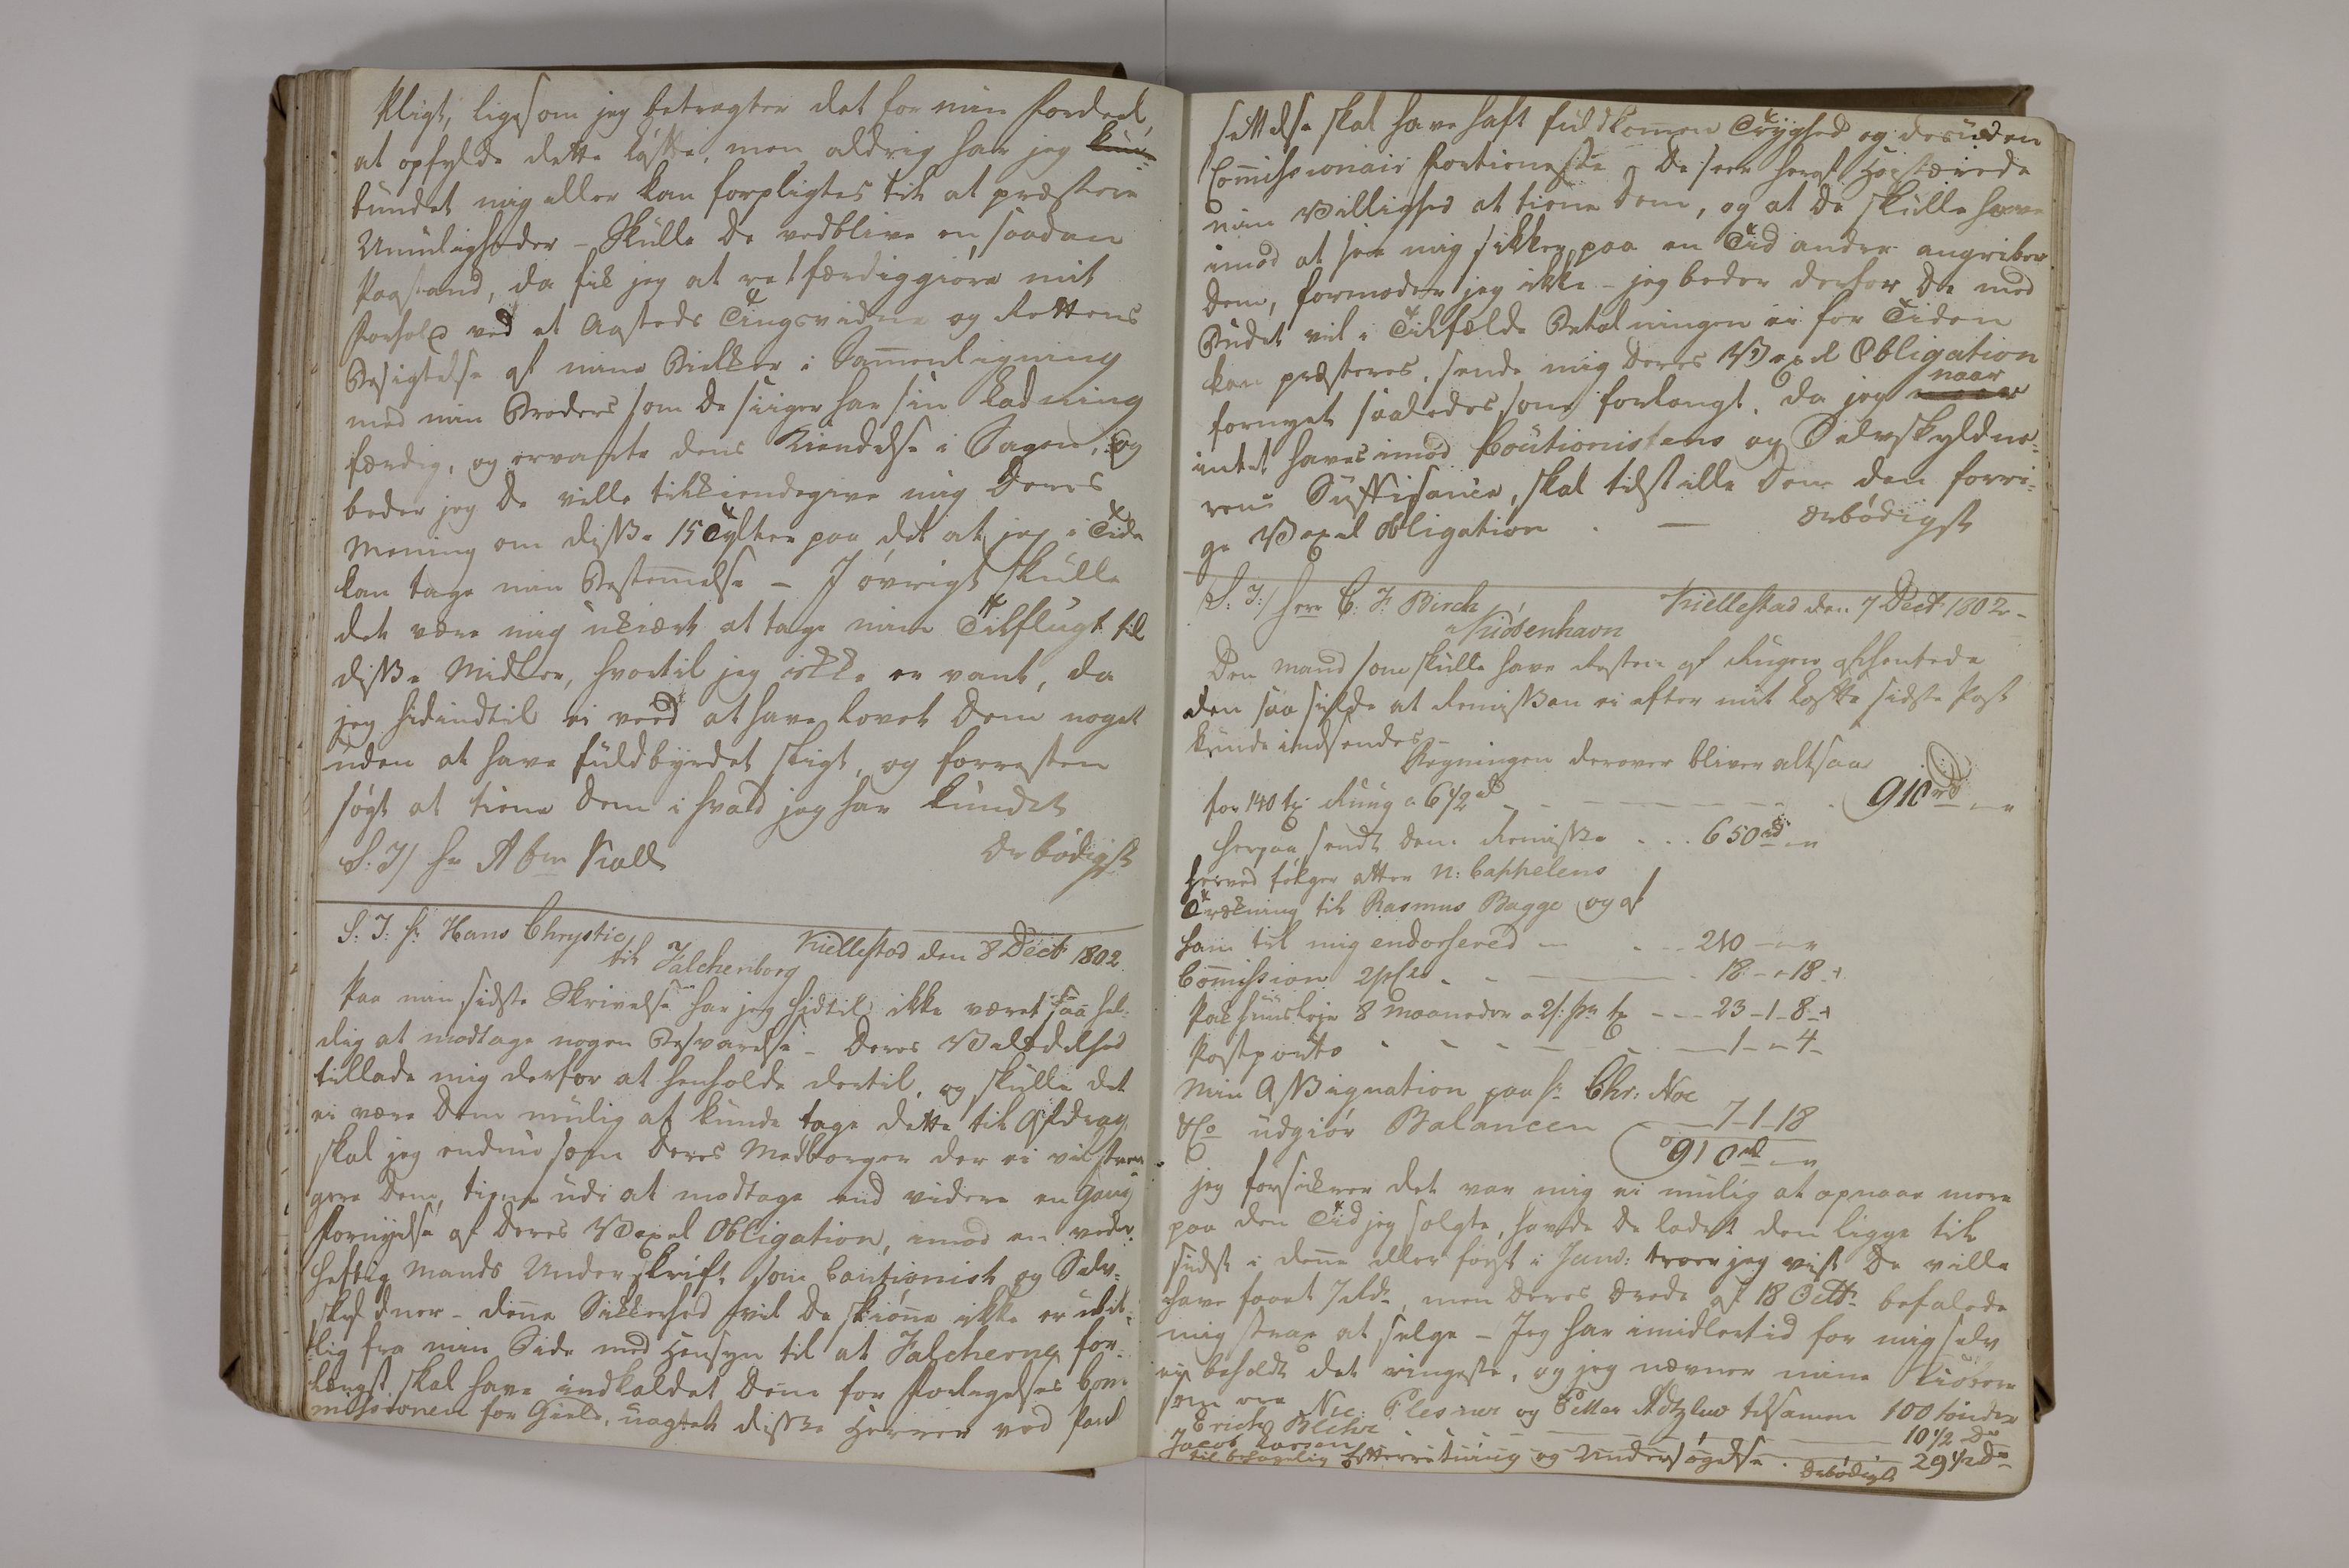 Pligt, ligesom jeg betragter det for min Fordeel,
at opfylde dette Løfte, men aldrig har jeg kun-
bundet mig eller kan forpligtes til at præstere
Umuligheder – Skulle De vedblive en saadan
Paastand, da fik jeg at retfærdiggiöre mit
Forhold ved et Aasteds Tingsvidne og Rettens
Besigtelse af mine Bielker i Sam̅enligning
med min Broders som De siiger har sin Ladning
færdig, og ervarte dens Kiendelse i Sagen, og
beder jeg De ville tilkiendegive mig Deres
Mening om disse 15 Tylter paa det at jeg i Tide
kan tage min Bestem̅else – I øvrigt skulle
det være mig ukiært at tage min Tilflugt til
disse Midler, hvortil jeg ikke er vant, da
jeg hidindtil ei veed at have lovet Dem noget
uden at have fuldbyrdet sligt, og forresten
søgt at tiene Dem i hvad jeg har kundet
S: T/ Hr Abm Kall Ærbødigst
S: T: Hr Hans Chrystie
til Falchenborg Kiellestad den 8 Decbr 1802.
Paa min sidste Skrivelse har jeg hidtil ikke været saa hel-
dig at modtage nogen Besvarelse – Deres Velædelhed
tillade mig derfor at henholde dertil, og skulle det
ei være Dem mulig at kunde tage dette til Afdrag,
skal jeg endnu som Deres Medborger der ei vil
gere Dem, tiene udi at modtage end videre en Gang
Fornyelse af Deres Vexel Obligation, imod en veder-
heftig Mands Underskrift som Cautionist og Selv-
skyldner – den̅e Sikkerhed vil De skiön̅e ikke er ubil-
lig fra min Side med Hensyn til at Falcherne for-
længst skal have indkaldet Dem for Forligelses Com-
missionen for Gield, uagtet disse Herrer ved
settelse skal have haft fuldkom̅en Tryghed og desuden
Com̅issionair Fortieneste – De seer heraf Høistærede
min Villighed at tiene Dem, og at De skulle have
imod at see mig sikker, paa en Tid andre angriber
Dem, formoder jeg ikke – jeg beder derfor De med
Budet vil i Tilfælde Betalningen ei for Tiden
kan præsteres, sende mig Deres Vexel Obligation
fornyet saaledes som forlangt, da jeg naar
intet haves imod Cautionistens og Selvskyldne-
rens Suffisance, skal tilstille Dem den forri-
ge Vexel Obligation. – Ærbødigst
S: T:/ Herr C: F: Birch
i Kiöbenhavn Kiellestad den 7 Decbr 1802 –
Den Mand som skulle have Resten af Rugen afhentede
den saa silde at Remissen ei efter mit Løfte sidste Post
kunde indsendes –
Regningen derover bliver altsaa
for 140 tr Rug a 6½ rd – – – – 910 rd – „
herpaa sendt Dem Remisse . . . 650 rd – „
herved følger atter N: Cappelens
Trækning til Rasmus Bagge og af
ham til mig endorsered – . – 210 – „ – „
Com̅ission 2 pCto . – – 18 – „ – 18 –
Pakhuusleje 8 Maaneder a 2 s: pr tr – – 23 – 1 – 8 –
Postporto – – – – 1 – „ – 4 –
Min Assignation paa Hr Chr: Noe
& Co udgiör Balancen – 7 – 1 – 18
910 rd – „
jeg forsikrer det var mig ei mulig at opnaae mere
paa den Tid jeg solgte, havde De ladet den ligge til
sidst i den̅e eller først i Janv: troer jeg vist De ville
have faaet 7 Rdr, men Deres Ordre af 18 Octbr befalede
mig strax at selge – Jeg har imidlertid for mig selv
ej beholdt det ringeste, og jeg nævner mine Kiöbere
som ere Nic: Plesner og Petter Adtzlew tilsam̅en 100 tönder
Erich Blehr – – – 10½ do
Jacob Larsen – – – 29½ do
til behagelig Efterretning og Undersögelse. Ærbödigst